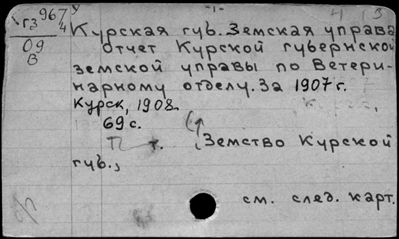 -1-
У
г3 967/4
09
В
Курская губ. Земская управа
Отчет Курской губернской
земской управы по Ветери-
нарному отделу. За 1907 г.
Курск, 1908.
69 с.
т. Земство Курской
губ.,
см. след. карт.